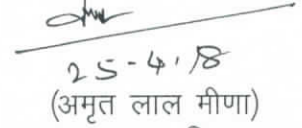 25-4.18
(अमृत लाल मीणा)